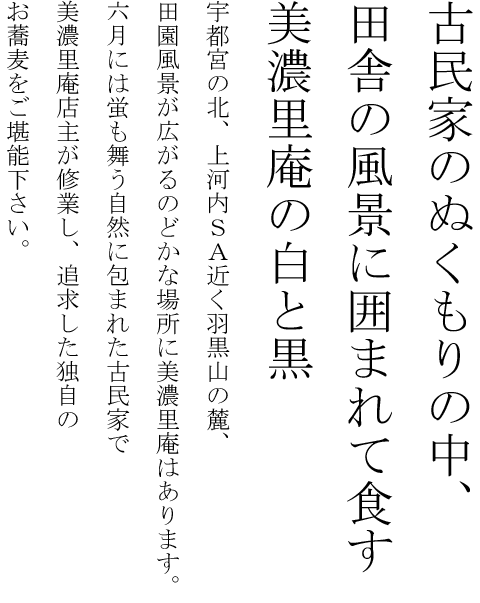 古民家のぬくもりの中、
田舎の風景に囲まれて食す
美濃里庵の白と黒
宇都宮の北、上河内ＳＡ近く羽黒山の麓、
田園風景が広がるのどかな場所に美濃里庵はあります。
六月には蛍も舞う自然に包まれた古民家で
美濃里庵店主が修業し、追求した独自の
お蕎麦をご堪能下さい。